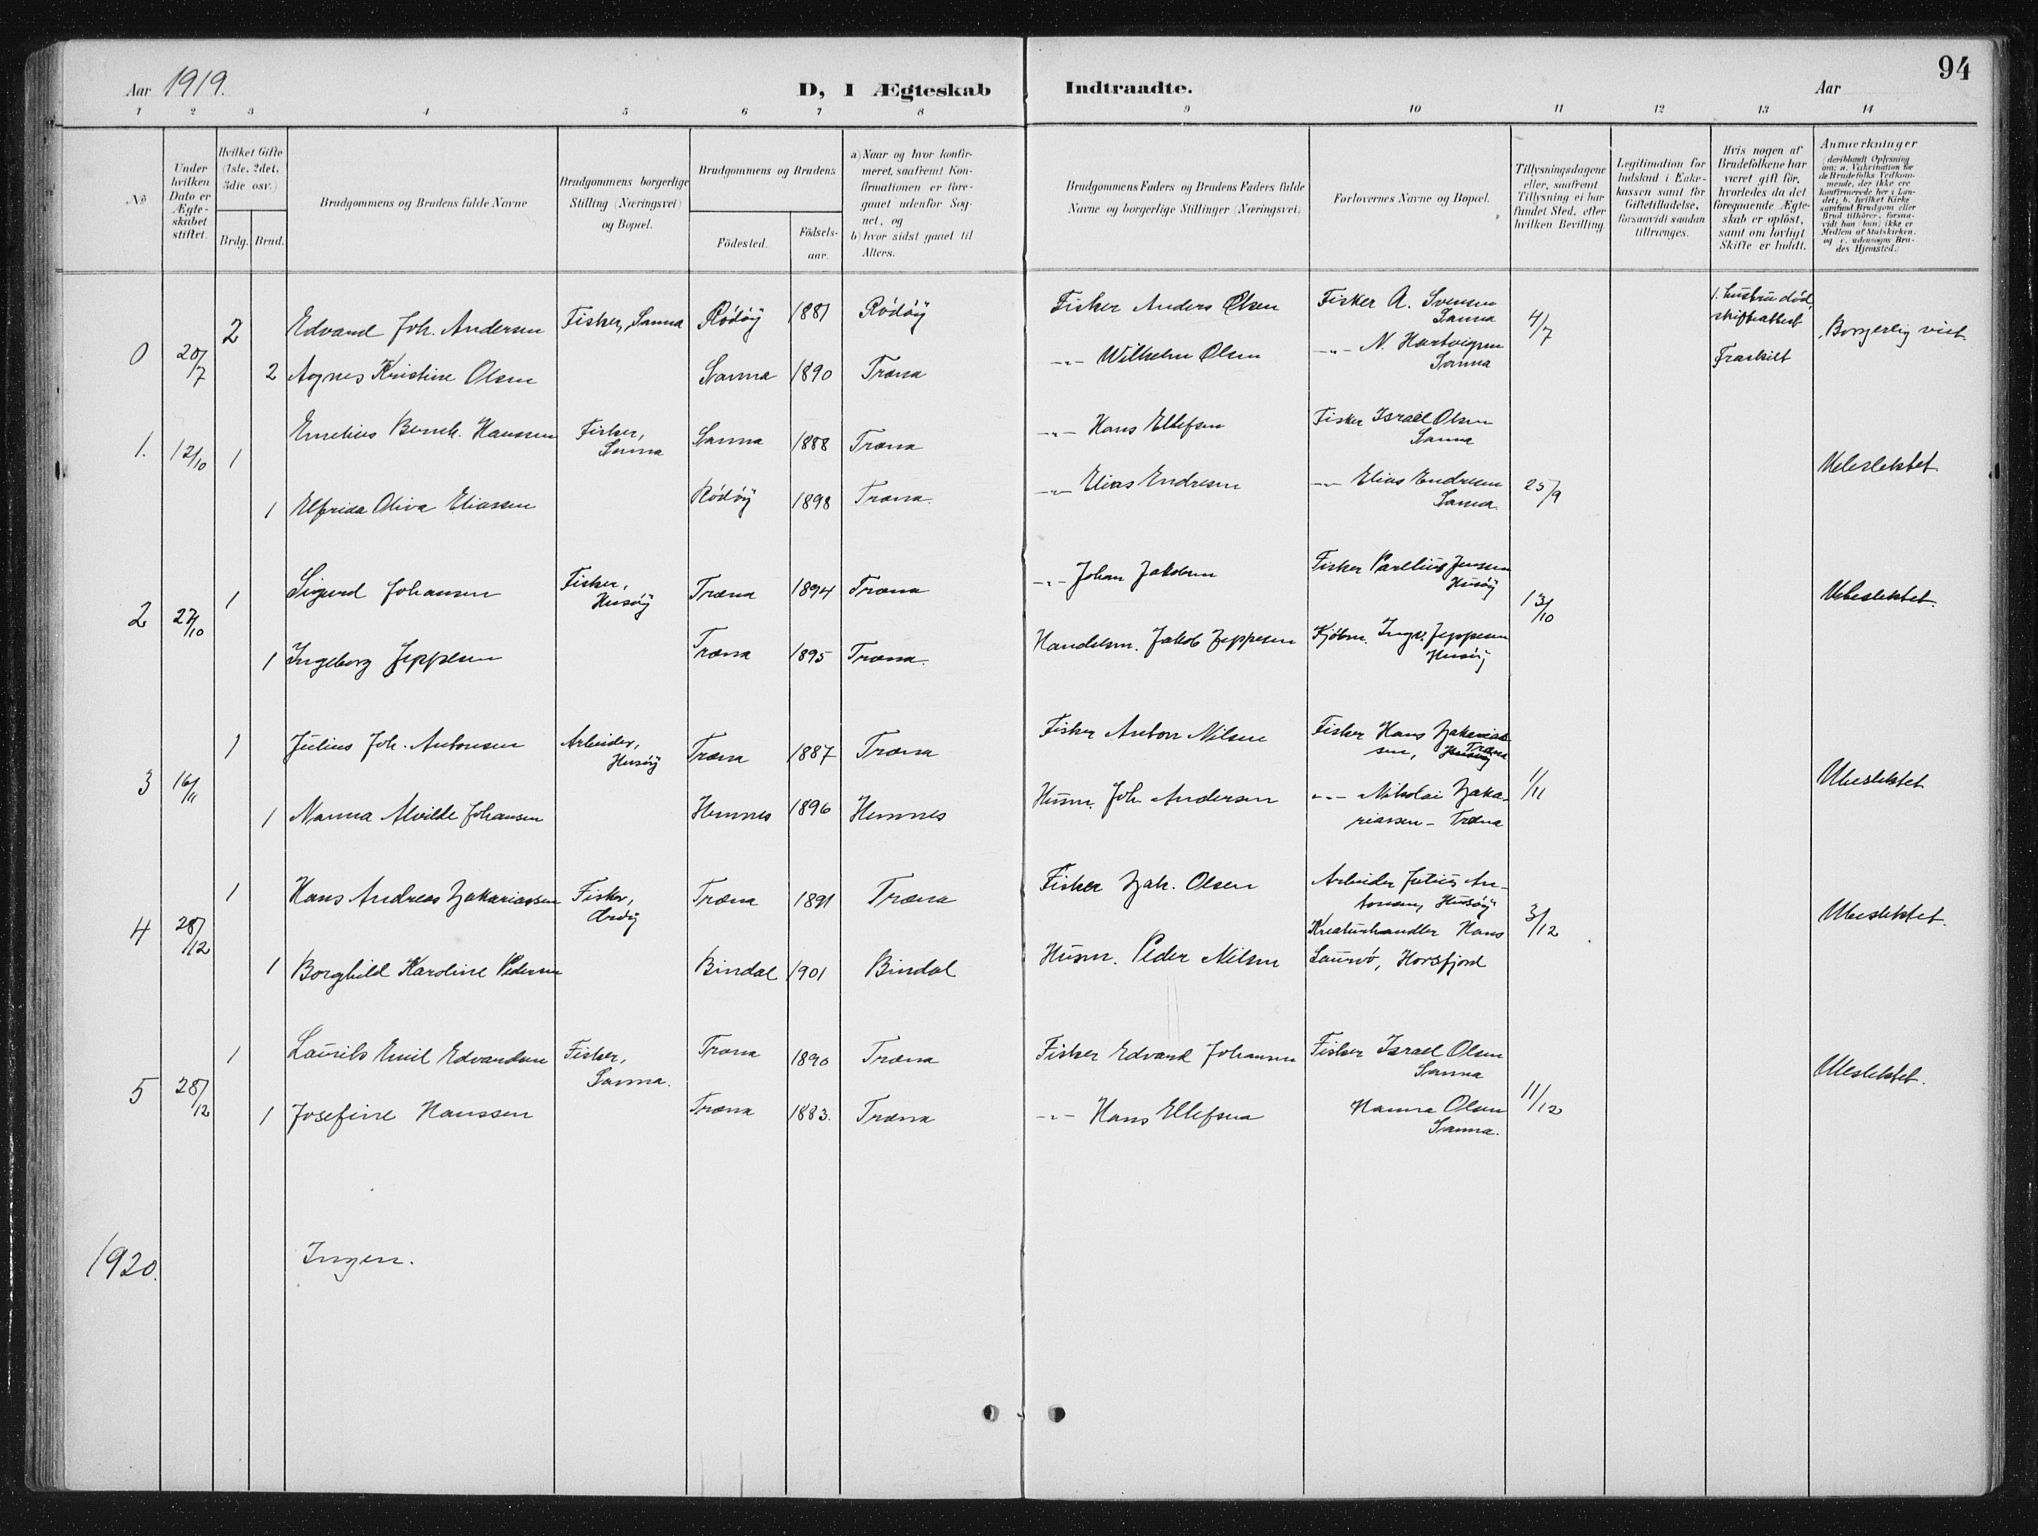 94
Aar 1919.
D, I Ægteskab Indtraadte.
Aar
1 2 3 4 5 6 7 8 9 10 11 12 13 14
No
Under hvilken Dato er Ægteskabet stiftet.
Hvilket Gifte (1ste, 2det, 3die osv.)
Brdg. Brud.
Brudgommens og Brudens fulde Navne
Brudgommens borgerlige Stilling (Næringsvei) og Bopæl.
Brudgommens og Brudens
Födested.
Födselsaar.
a) Naar og hvor konfirmeret, saafremt Konfirmationen er foregaaet udenfor Sognet, og
b) hvor sidst gaaet til Alters.
Brudgommens Faders og Brudens Faders fulde Navne og borgerlige Stillinger (Næringsvei)
Forlovernes Navne og Bopæl.
Tillysningsdagene eller, saafremt Tillysning ei har fundet Sted, efter hvilken Bevilling.
Legitimation for Indskud i Enkekassen samt for Giftetilladelse, forsaavidt saadan tiltrænges.
Hvis nogen af Brudefolkene har været gift før, hvorledes da det foregaaende Ægteskab er oplöst, samt om lovligt Skifte er holdt.
Anmerkninger
(deriblandt Oplysning om: a. Vakcination for de Brudefolks Vedkommende, der ikke ere konfirmerede her i Landet; b. hvilket Kirkesamfund Brudgom eller Brud tilhörer, forsaavidt han (hun) ikke er Medlem af Statskirken, og c. udensogns Brudes Hjemsted.)
0 20/7 2 Edvard Joh. Andersen Fisker, Sanna Rödöy 1881 Rödöy Fisker Anders Olsen Fisker A. Svensen Sanna 4/7 1. hustru död, skifteattest Borgerlig viet.
2 Agnes Kristine Olsen Sanna 1890 Træna -"- Wilhelm Olsen -"- N. Hartvigsen Sanna Fraskilt
1. 12/10 1 Emelius Hanssen Fisker, Sanna Sanna 1888 Træna -"- Hans Ellefsen Fisker Israel Olsen Sanna Ubeslektet
1 Elfrida Oliva Eliassen Rödöy 1898 Træna. -"- Elias Endresen -"- Elias Endresen Sanna. 25/9
2 27/10 1 Sigurd Johansen Fisker, Husöy Træna 1894 Træna -"- Johan Jakobsen Fisker Parelius Jensen Husöy 13/10 Ubeslektet.
1 Ingeborg Jeppesen Træna 1895 Træna. Handelsm. Jakob Jeppesen Kjöbm. Jeppesen Husöy
3 16/11 1 Julius Joh. Antonsen Arbeider, Husöy Træna 1887 Træna Fisker Anton Nilsen Fisker Hans Zakariassen, Træna 1/11 Ubeslektet
1 Nanna Alvilde Johansen Hemnes 1896 Hemnes Husm. Joh. Andersen -"- Nikolai Zakariassen - Træna
4 28/12 1 Hans Andreas Zakariassen Fisker, Træna 1891 Træna Fisker Zak. Olsen Arbeider Julius Antonsen, Husöy 3/12 Ubeslektet.
1 Borghild Karoline Pedersen Bindal 1901 Bindal Husm. Peder Nilsen Kreaturhandler Hans Horsfjord
5 28/12 1 Laurits Emil Edvardsen Fisker, Sanna. Træna 1890 Træna Fisker Edvard Johansen Fisker Israel Olsen Sanna 11/12 Ubeslektet.
1 Josefine Hanssen Træna 1883. Træna -"- Hans Ellefsen Hanna Olsen Sanna.
1920. Ingen.